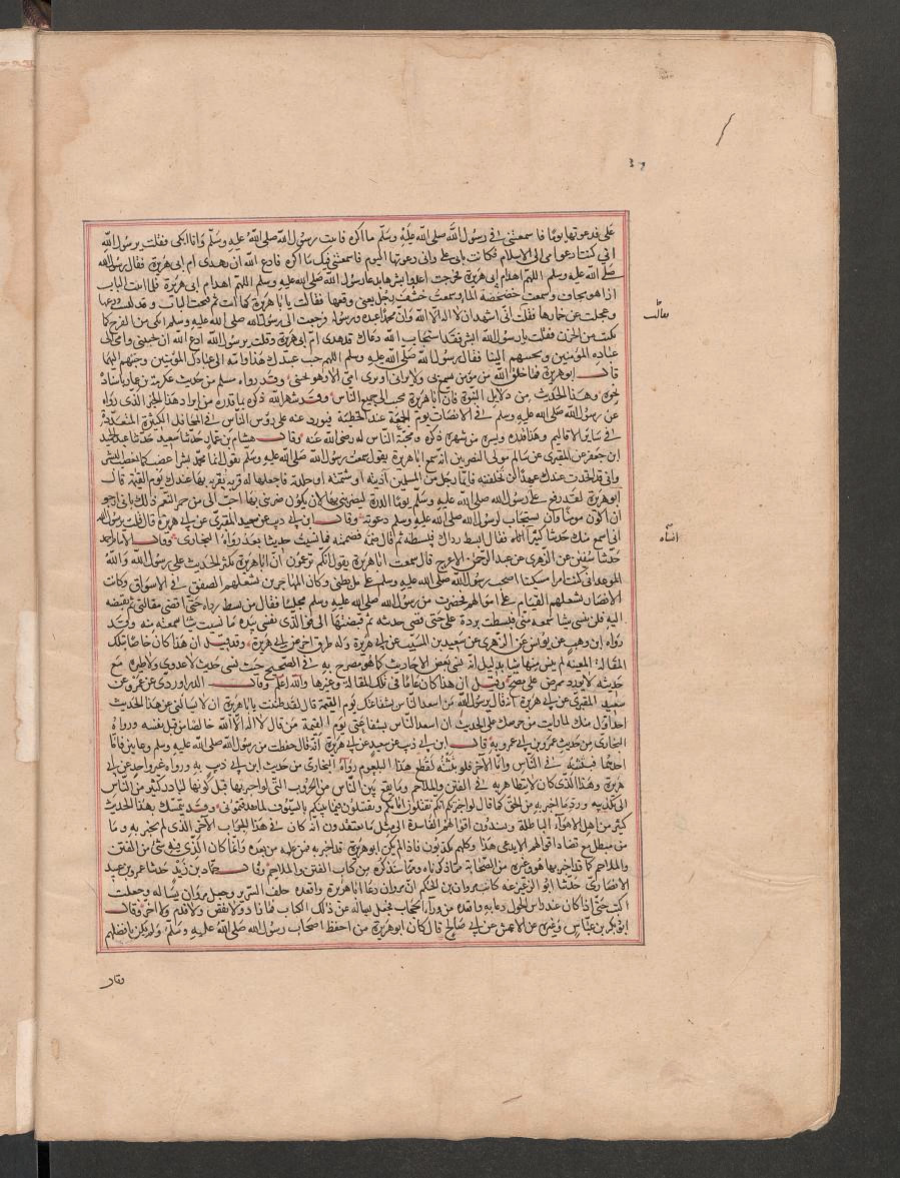 على فدعوتها يوما فاسمعتني في رسول الله صلى الله عليه وسلم ما اكره فاتيت رسول الله صلى الله عليه وسلم وانا ابكي فقلت يرسول الله
اني كنت ادعو امي الى الاسلام فكانت تابى علي واني دعوتها اليوم فاسمعتني فيك ما اكره فادع الله ان يهدى ام ابى هريرة فقال رسول الله
صلى الله عليه وسلم اللهم اهد ام ابى هريرة فخرجت اعدو ابشرها بدعا رسول الله صلى الله عليه وسلم اللهم اهد ام ابى هريرة فلما اتيت الباب
اذا هو مجاف وسمعت خضخضة الما وسمعت خشف رجل يعنى وقعها فقالت يا ابا هريرة كما انت ثم فتحت الباب وقد لبست درعها
وعجلت عن خمارها فقلت انى اشهد ان لا اله الا الله وان محمدا عبده ورسوله فرجعت الى رسول الله صلى الله عليه وسلم ابكى من الفرح كما
بكيت من الحزن فقلت يا رسول الله ابشر فقد استجاب الله دعاك قد هدى ام ابى هريرة وقلت يرسول الله ادع الله ان يحببنى وامى الى
عباده المؤمنين ويحببهم الينا فقال رسول الله صلى الله عليه وسلم اللهم حبب عبيدك هذا وامه الى عبادك المؤمنين وحببهم اليهما
قال ابو هريرة فما خلق الله من مؤمن يسمع بى ولا يرانى او يرى امى الا وهو يحبنى وقد رواه مسلم من حديث عكرمة بن عمار باسناده
نحوه وهذا الحديث من دلايل النبوة فان ابا هريرة محبب الى جميع الناس وقد شهر الله ذكره بما قدره من ايراد هذا الخبر الذى رواه
عن رسول الله صلى الله عليه وسلم فى الانصات يوم الجمعة عند الخطبة فيورد عنه على رؤس الناس فى المحافل الكثيرة المتعددة
فى ساير الاقاليم وهذا قدره ويسره من شهرة ذكره ومحبة الناس له رضى الله عنه وقال هشام بن عمار حدثنا سعيد حدثنا عبد الحميد
ابن جعفر عن المقبرى عن سالم مولى النصريين انه سمع ابا هريرة يقول سمعت رسول الله صلى الله عليه وسلم يقول انما محمد بشر اغضب كما يغضب البشر
وانى قد اتخذت عندك عهدا لن تخلفنيه فايما رجل من المسلمين آذيته او شتمته او جلدته فاجعلها له قربة تقربه بها عندك يوم القيمة قال
ابو هريرة لقد رفع على رسول الله صلى الله عليه وسلم يوما الدرة ليضربنى بها لان يكون ضربنى بها احب الى من حمر النعم ذلك بانى ارجو
ان اكون مومنا وان يستجاب لرسول الله صلى الله عليه وسلم دعوته وقال ابن ابى ذيب عن سعيد المقبرى عن ابى هريرة قال قلت يرسول الله
انى اسمع منك حديثا كثيرا انساه فقال ابسط رداك فبسطته ثم قال ضمه فضممته فما نسيت حديثا بعد رواه البخارى وقال الامام احمد
حدثنا سفين عن الزهرى عن عبد الرحمن الاعرج قال سمعت ابا هريرة يقول انكم تزعمون ان ابا هريرة يكثر الحديث على رسول الله والله
الموعد انى كنت امرا مسكينا اصحب رسول الله صلى الله عليه وسلم على مل بطنى وكان المهاجرين يشغلهم الصفق فى الاسواق وكانت
الانصار يشغلهم القيام على اموالهم فحضرت من رسول الله صلى الله عليه وسلم مجلسا فقال من بسط رداه حتى اقضى مقالتى ثم يقبضه
اليه فلن ينسى شيا سمعه منى فبسطت بردة على حتى قضى حديثه ثم قبضتها الى فو الذى نفسى بيده ما نسيت شيا سمعته منه وقد
رواه ابن وهب عن يونس عن الزهرى عن سعيد بن المسيب عن ابى هريرة وله طرق اخر عن ابى هريرة وقد قيل ان هذا كان خاصا بتلك
المقالة المعينة لم ينس منها شيا بدليل انه نسى بعض الاحاديث كما هو مصرح به فى الصحيح حيث نسى حديث لا عدوى ولا طيرة مع
حديثه لا يورد ممرض على مصح وقيل ان هذا كان عاما فى تلك المقالة وغيرها والله اعلم وقال الدراوردى عن عمرو عن
سعيد المقبرى عن ابى هريرة انه قال يرسول الله من اسعد الناس بشفاعتك يوم القيمة قال لقد ظننت يا ابا هريرة ان لا يسالنى عن هذا الحديث
احد اول منك لما رايت من حرصك على الحديث ان اسعد الناس بشفاعتى يوم القيمة من قال لا اله الا الله خالصا من قبل نفسه ورواه
البخارى من حديث عمرو بن ابى عمرو به قال ابن ابى ذيب عن سعيد عن ابى هريرة انه قال حفظت من رسول الله صلى الله عليه وسلم وعاين فاما
احدهما فبثثته فى الناس واما الآخر فلو بثثته لقطع هذا البلعوم رواه البخارى من حديث ابن ابى ذيب به ورواه غير واحد عن ابى
هريرة وهذا الذى كان لا يتظاهر به فى الفتن والملاحم وما يقع بين الناس من الحروب التى لو اخبر بها قبل كونها لبادر كثير من الناس
الى تكذيبه وردما اخبر به من الحق كما قال لو اخبرتكم انكم تقتلون امامكم وتقتتلون فيما بينكم بالسيوف لما صدقتمونى وقد يتمسك بهذا الحديث
كثير من اهل الاهواء الباطلة ويسندون اقوالهم الفاسدة الى مثل ما يعتقدون انه كان فى هذا الجراب الآخر الذى لم يخبر به وما
من مبطل مع تضاد اقوالهم الا يدعى هذا وكلهم يكذبون فاذا لم يكن ابو هريرة قد اخبر به فمن علمه من بعده وانما كان الذى فيه شى من الفتن
والملاحم كما قد اخبر بها هو وغيره من الصحابة مما ذكرناه ومما سنذكره من كتاب الفتن والملاحم وقال حماد بن زيد حدثنا عمرو بن عبيد
الانصارى حدثنا ابو الزعيزعه كاتب مروان بن الحكم ان مروان دعا ابا هريرة واقعده خلف السرير وجعل مروان يساله وجعلت
اكتب حتى اذا كان عند راس الحول دعا به واقعده من ورآء الحجاب فجعل يساله عن ذلك الكتاب فما زاد ولا نقص ولا قدم ولا اخر وقال
ابو بكر بن عياش وغيره عن الاعمش عن ابى صالح قال كان ابو هريرة من احفظ اصحاب رسول الله صلى الله عليه وسلم ولم يكن بافضلهم
انساه
وقال